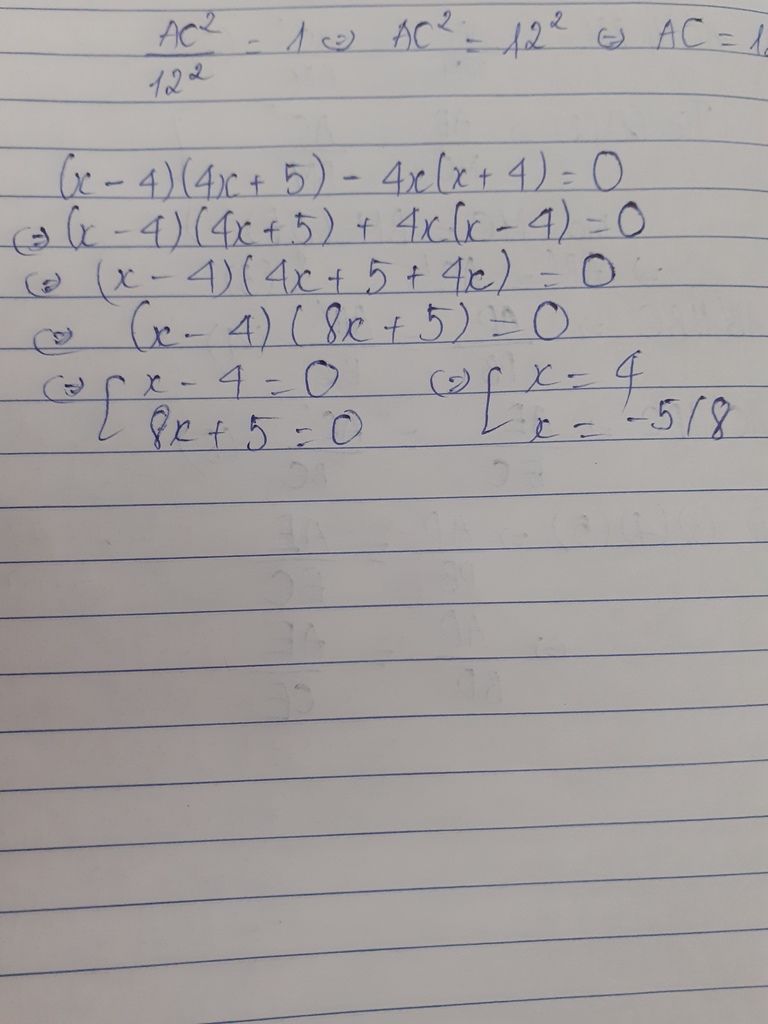 AC²/12² = 1 ⇔ AC² = 12² ⇔ AC = 1
(x - 4)(4x + 5) - 4x(x + 4) = 0
⇔ (x - 4)(4x + 5) + 4x(x - 4) = 0
⇔ (x - 4)(4x + 5 + 4x) = 0
⇔ (x - 4)(8x + 5) = 0
⇔ [ x - 4 = 0 ⇔ [ x = 4
8x + 5 = 0 x = -5/8